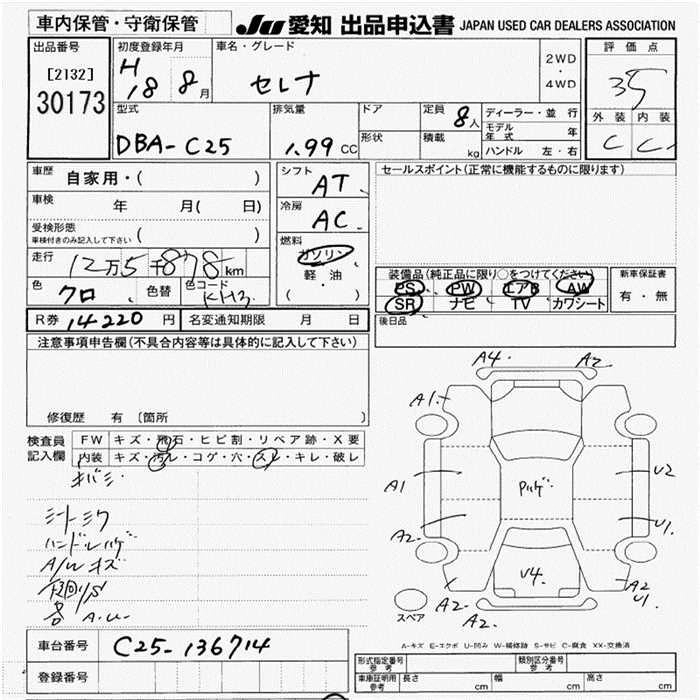 車内保管・守衛保管
JU 愛知 出品申込書 JAPAN USED CAR DEALERS ASSOCIATION
出品番号
[2132]
30173
初度登録年月
H 18 8月
車名・グレード
セレナ
2WD
・
4WD
評価点
35
外装 内装
C C
型式
DBA-C25
排気量
1.99 CC
ドア
形状
定員 8人
積載 kg
ディーラー・並行
モデル年式 年
ハンドル 左・右
車歴 自家用・( )
車検 年 月( 日)
受検形態
車検付きのみ記入して下さい ( )
走行 12万5千878km
色 クロ 色替 色コード KH3
シフト AT
冷房 AC
燃料
ガソリン
軽・油
( )
セールスポイント(正常に機能するものに限ります)
装備品(純正品に限り○をつけてください)
PS PW エアB AW
SR ナビ TV カワシート
新車保証書
有・無
後日品
R券 14220 円 名変通知期限 月 日
注意事項申告欄(不具合内容等は具体的に記入して下さい)
修復歴 有 [箇所 ]
検査員
記入欄
FW キズ・飛石・ヒビ割・リペア跡・X要
内装 キズ・汚レ・コゲ・穴・スレ・キレ・破レ
キバミ
シートシワ
ハンドルハゲ
A/Wキズ
下回リS
各 A.U
A4. A2
A1.
A1
A2.
A2.
A2.
U2
U1.
A2
U1.
Pハゲ
U4.
スペア
A-キズ E-エクボ U-凹み W-補修跡 S-サビ C-腐食 XX-交換済
車台番号 C25-136714
登録番号
形式指定番号
参考
類別区分番号
参考
車庫証明用
参考
長さ cm 幅 cm 高さ cm